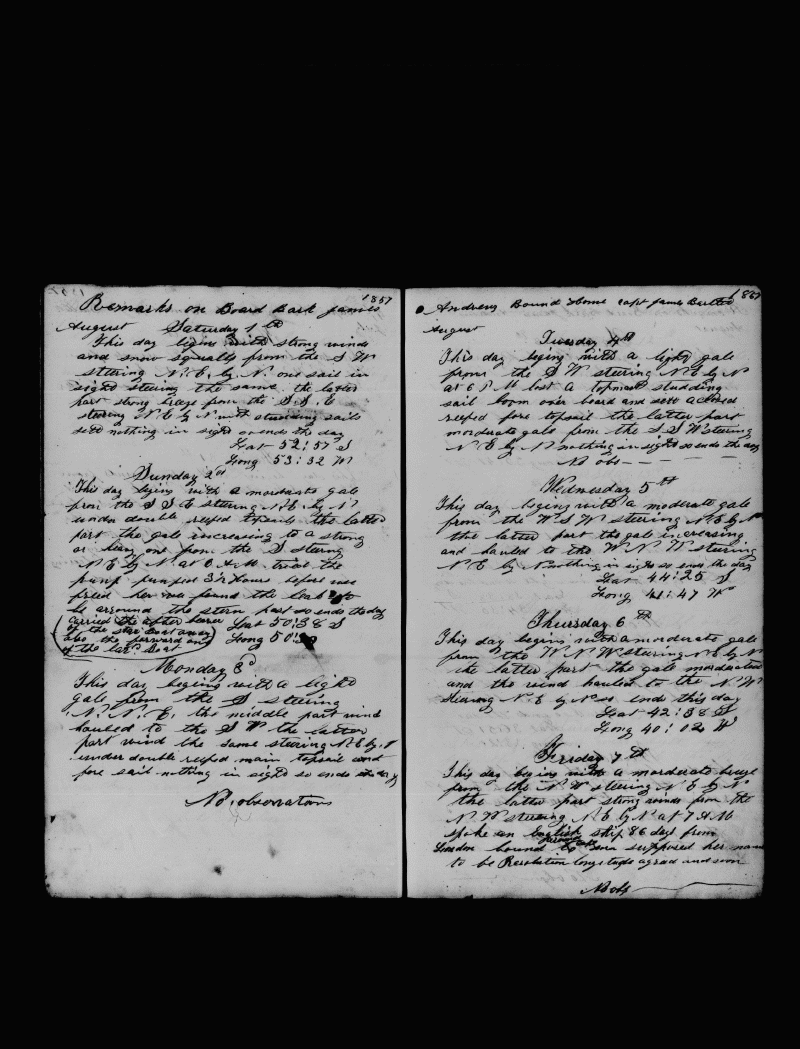 1857
Remarks on Board Bark James
August Saturday 1st
This day begins with strong winds
and snow squalls from the S W
steering N. E. by N one sail in
sight steering the same the latter
part strong breze from the S. S. E
stering N E by N with studding sails
sett nothing in sight so ends the day
Lat 52:57 S
Long 53:32 W
Sunday 2d
This day begins with a morderate gale
from the S S E steering N E by N
under double reefed topsails the latter
part the gale increasing to a strong
from the S stering
N E by N at 8 A.M. tried the
pump pumped 3½ hours before we
freed her we found the leak to
be around the stern post so ends the day
Carried the after bearer
of the star boat away
also the forward one
of the lar. boat
Lat 50:38 S
Long 50:
Monday 3d
This day begins with a light
gale from the S steering
N. N. E. the middle part wind
hauled to the S W the latter
part wind the same steering N E by N
under double reefed main topsail and
fore sail nothing in sight so ends the day
No observations
1857
Andrews Bound Home Capt James
August
Tuesday 4th
This day begins with a light gale
from the S W steering N E by N
at 6 P M lost a topmast studding
sail boom over board and sett a closed
reefed fore topsail the latter part
morderate gale from the S S W steering
N E by N nothing in sight so ends the day
No obs
Wednesday 5th
This day begins with a moderate gale
from the W S W steering N E by N
the latter part the gale increasing
and hauled to the W N W steering
N E by N nothing in sight so ends the day
Lat 44:25 S
Long 41:47 W
Thursday 6th
This day begins with a morderate gale
from the W N W stering N E by N
the latter part the gale morderated
and the wind hauled to the N W
stearing N E by N so ends this day
Lat 42:38 S
Long 40:02 W
Friday 7th
This day begins with a morderate breze
from the N W steering N E by N
the latter part strong winds from the
N W steering N E by N at 7 A M
spoke an English ship 86 days from
London bound to supposed her name
to be Resolution longitude agread and soon
No obs